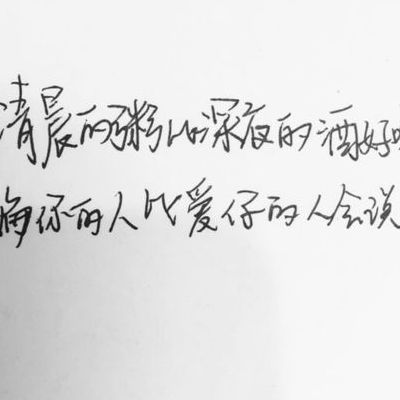 清晨的粥比深夜的酒好
骗你的人比爱你的人会说